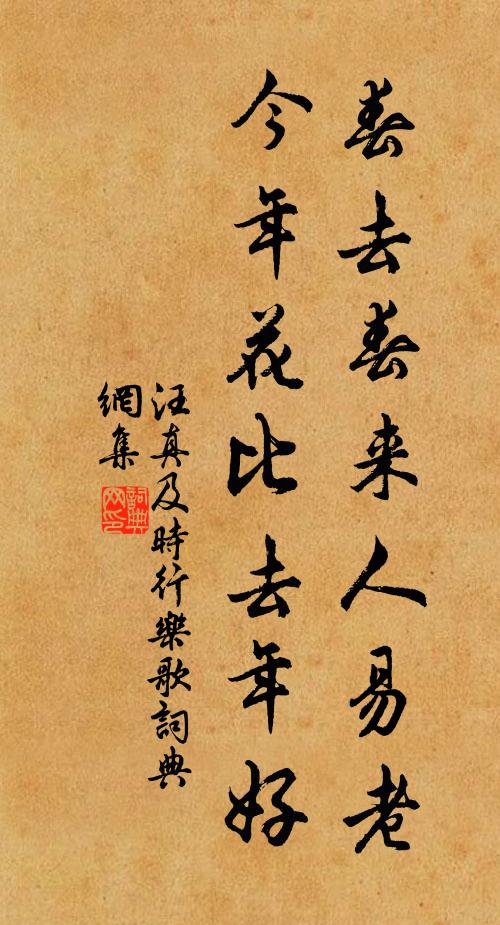 春去春来人易老
今年花比去年好
汪真及時行樂歌詞典
網集
詞典
网印